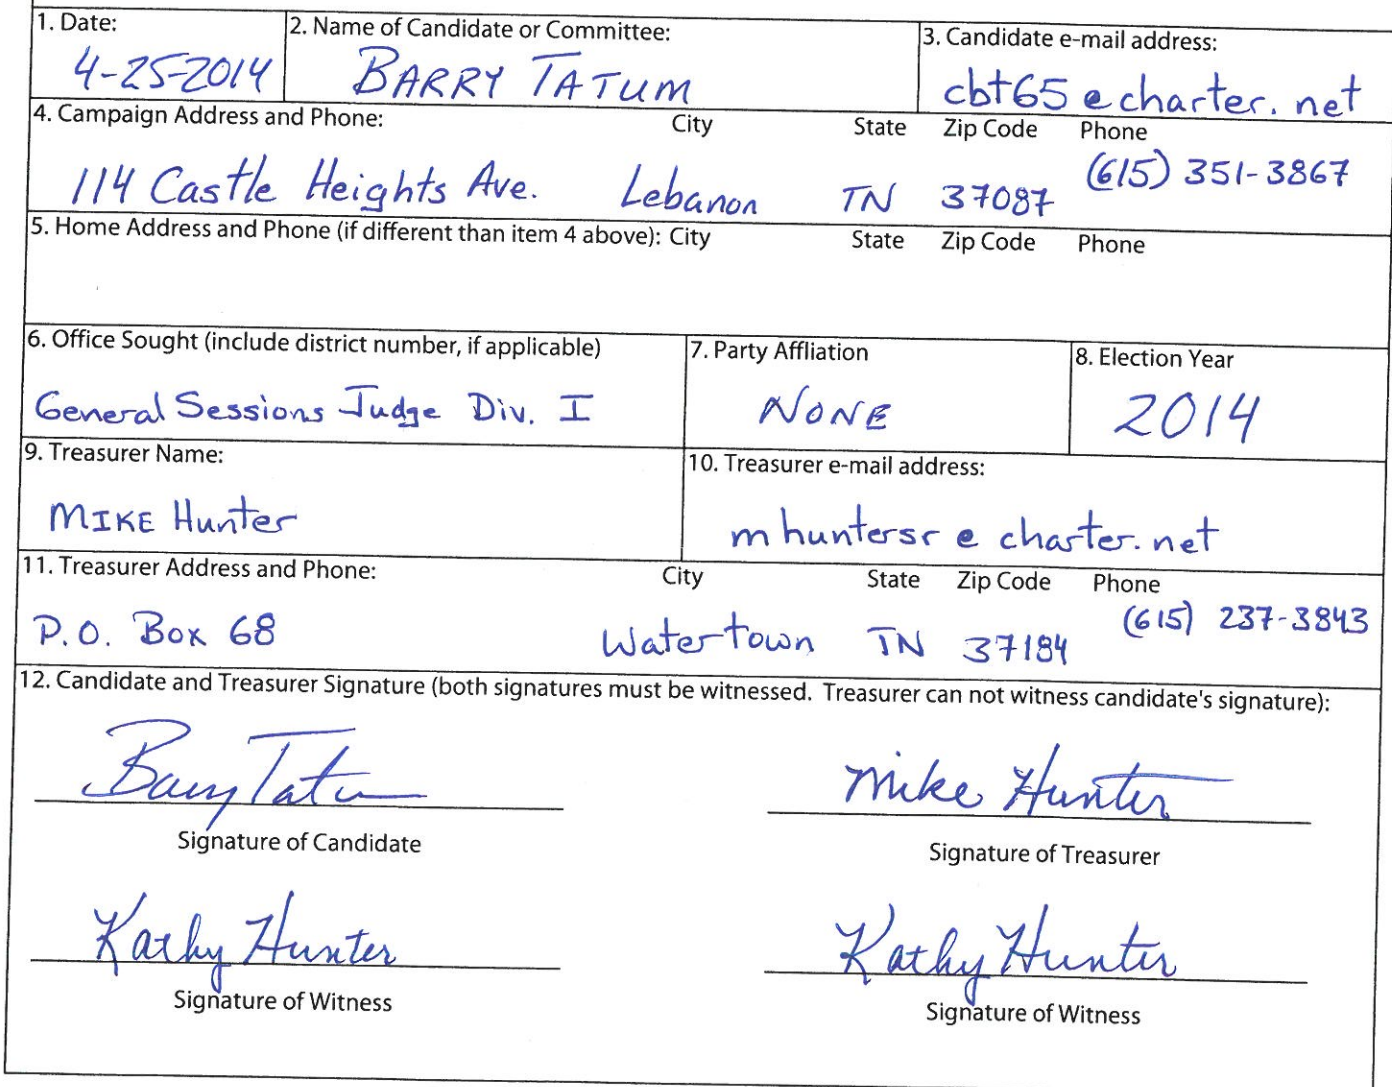 1. Date: 2. Name of Candidate or Committee: 3. Candidate e-mail address:
4-25-2014 BARRY TATUM cbt65@charter.net
4. Campaign Address and Phone: City State Zip Code Phone
114 Castle Heights Ave. Lebanon TN 37087 (615) 351-3867
5. Home Address and Phone (if different than item 4 above): City State Zip Code Phone
6. Office Sought (include district number, if applicable) 7. Party Affliation 8. Election Year
General Sessions Judge Div. I NONE 2014
9. Treasurer Name: 10. Treasurer e-mail address:
MIKE Hunter mhuntersr@charter.net
11. Treasurer Address and Phone: City State Zip Code Phone
P.O. Box 68 Watertown TN 37184 (615) 237-3843
12. Candidate and Treasurer Signature (both signatures must be witnessed. Treasurer can not witness candidate's signature):
Barry Tatum Mike Hunter
Signature of Candidate Signature of Treasurer
Kathy Hunter Kathy Hunter
Signature of Witness Signature of Witness